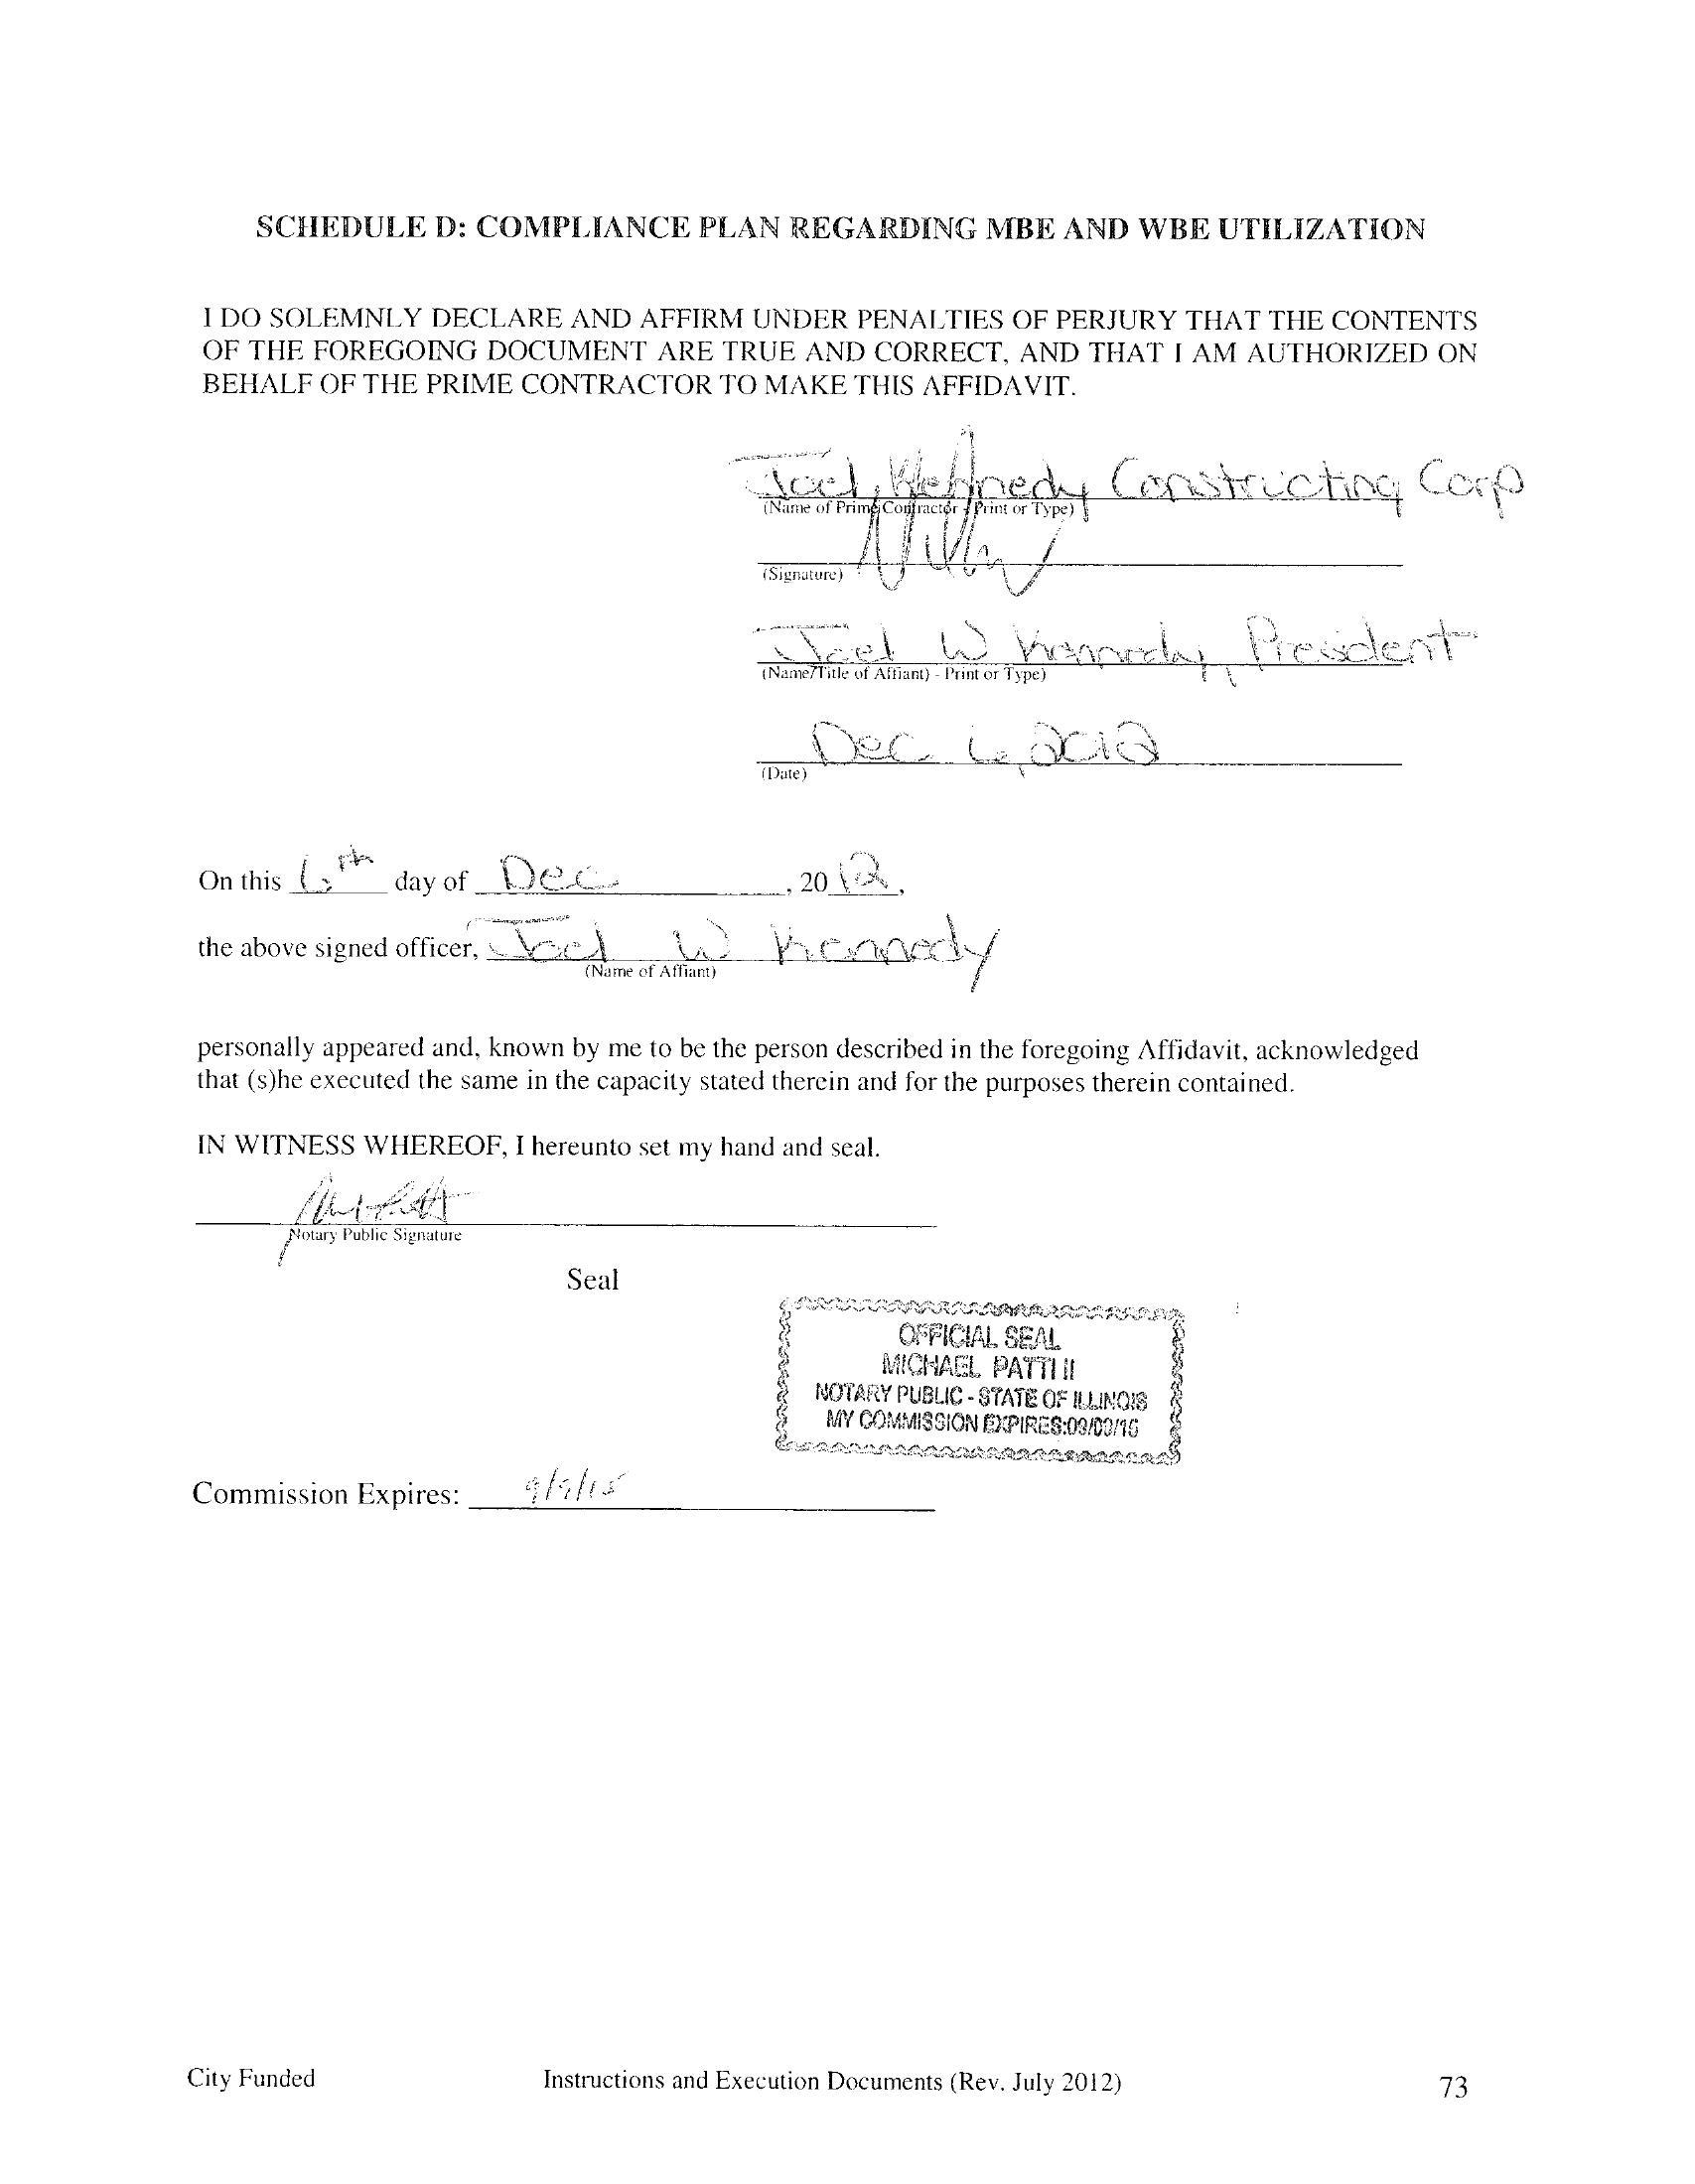 SCHEDULE D: COMPLIANCE PLAN REGARDING MBE AND WBE UTILIZATION
I DO SOLEMNLY DECLARE AND AFFIRM UNDER PENALTIES OF PERJURY THAT THE CONTENTS
OF THE FOREGOING DOCUMENT ARE TRUE AND CORRECT, AND THAT I AM AUTHORIZED ON
BEHALF OF THE PRIME CONTRACTOR TO MAKE THIS AFFIDAVIT.
Joel Kennedy Constructing Corp
(Name of Prime Contractor - Print or Type)
(Signature)
Joel W Kennedy, President
(Name/Title of Affiant) - Print or Type)
Dec 6, 2012
(Date)
On this 6th day of Dec, 20 12,
the above signed officer, Joel W Kennedy
(Name of Affiant)
personally appeared and, known by me to be the person described in the foregoing Affidavit, acknowledged
that (s)he executed the same in the capacity stated therein and for the purposes therein contained.
IN WITNESS WHEREOF, I hereunto set my hand and seal.
Notary Public Signature
Seal
OFFICIAL SEAL
MICHAEL PATTI II
NOTARY PUBLIC - STATE OF ILLINOIS
MY COMMISSION EXPIRES:
Commission Expires:
City Funded Instructions and Execution Documents (Rev. July 2012) 73